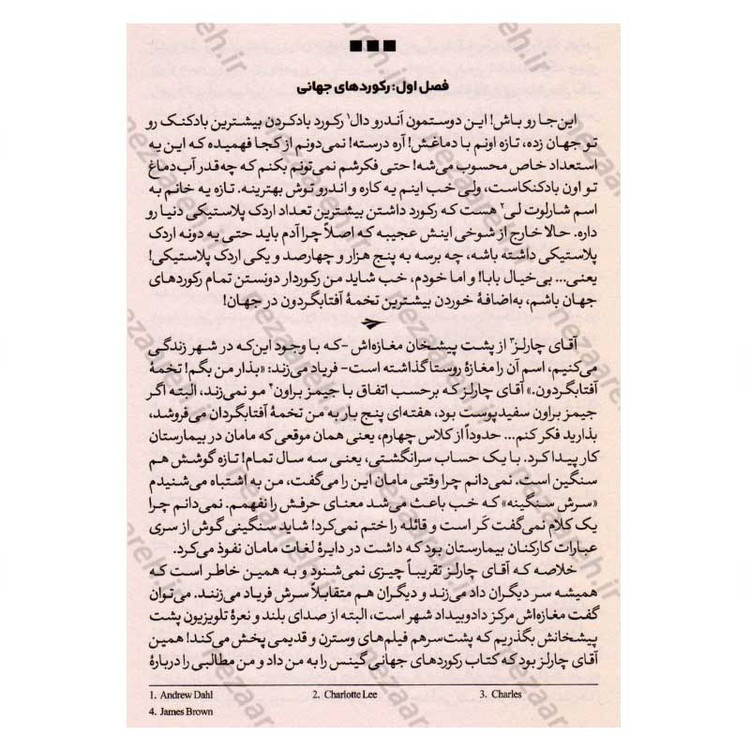 فصل اول: رکوردهای جهانی
این‌جا رو باش! این دوستمون آندرو دال۱ رکورد بادکردن بیشترین بادکنک رو
تو جهان زده، تازه اونم با دماغش! آره درسته! نمی‌دونم از کجا فهمیده که این یه
استعداد خاص محسوب می‌شه! حتی فکرشم نمی‌تونم بکنم که چه‌قدر آب‌دماغ
تو اون بادکنکاست، ولی خب اینم یه کاره و اندرو توش بهترینه. تازه یه خانم به
اسم شارلوت لی۲ هست که رکورد داشتن بیشترین تعداد اردک پلاستیکی دنیا رو
داره. حالا خارج از شوخی اینش عجیبه که اصلاً چرا آدم باید حتی یه دونه اردک
پلاستیکی داشته باشه، چه برسه به پنج هزار و چهارصد و یکی اردک پلاستیکی!
یعنی... بی‌خیال بابا! و اما خودم، خب شاید من رکوردار دونستن تمام رکوردهای
جهان باشم، به‌اضافهٔ خوردن بیشترین تخمهٔ آفتابگردون در جهان!
آقای چارلز۳ از پشت پیشخان مغازه‌اش -که با وجود این‌که در شهر زندگی
می‌کنیم، اسم آن را مغازهٔ روستا گذاشته است- فریاد می‌زند: «بذار من بگم! تخمهٔ
آفتابگردون.» آقای چارلز که برحسب اتفاق با جیمز براون۴ مو نمی‌زند، البته اگر
جیمز براون سفیدپوست بود، هفته‌ای پنج بار به من تخمهٔ آفتابگردان می‌فروشد،
بذارید فکر کنم... حدوداً از کلاس چهارم، یعنی همان موقعی که مامان در بیمارستان
کار پیدا کرد. با یک حساب سرانگشتی، یعنی سه سال تمام! تازه گوشش هم
سنگین است. نمی‌دانم چرا وقتی مامان این را می‌گفت، من به اشتباه می‌شنیدم
«سرش سنگینه» که خب باعث می‌شد معنای حرفش را نفهمم. نمی‌دانم چرا
یک کلام نمی‌گفت کَر است و قائله را ختم نمی‌کرد! شاید سنگینی گوش از سری
عبارات کارکنان بیمارستان بود که داشت در دایرهٔ لغات مامان نفوذ می‌کرد.
خلاصه که آقای چارلز تقریباً چیزی نمی‌شنود و به همین خاطر است که
همیشه سر دیگران داد می‌زند و دیگران هم متقابلاً سرش فریاد می‌زنند. می‌توان
گفت مغازه‌اش مرکز دادوبیداد شهر است، البته از صدای بلند و نعرهٔ تلویزیون پشت
پیشخانش بگذریم که پشت‌سرهم فیلم‌های وسترن و قدیمی پخش می‌کند! همین
آقای چارلز بود که کتاب رکوردهای جهانی گینس را به من داد و من مطالبی را دربارهٔ
1. Andrew Dahl 2. Charlotte Lee 3. Charles
4. James Brown
nezaareh.ir